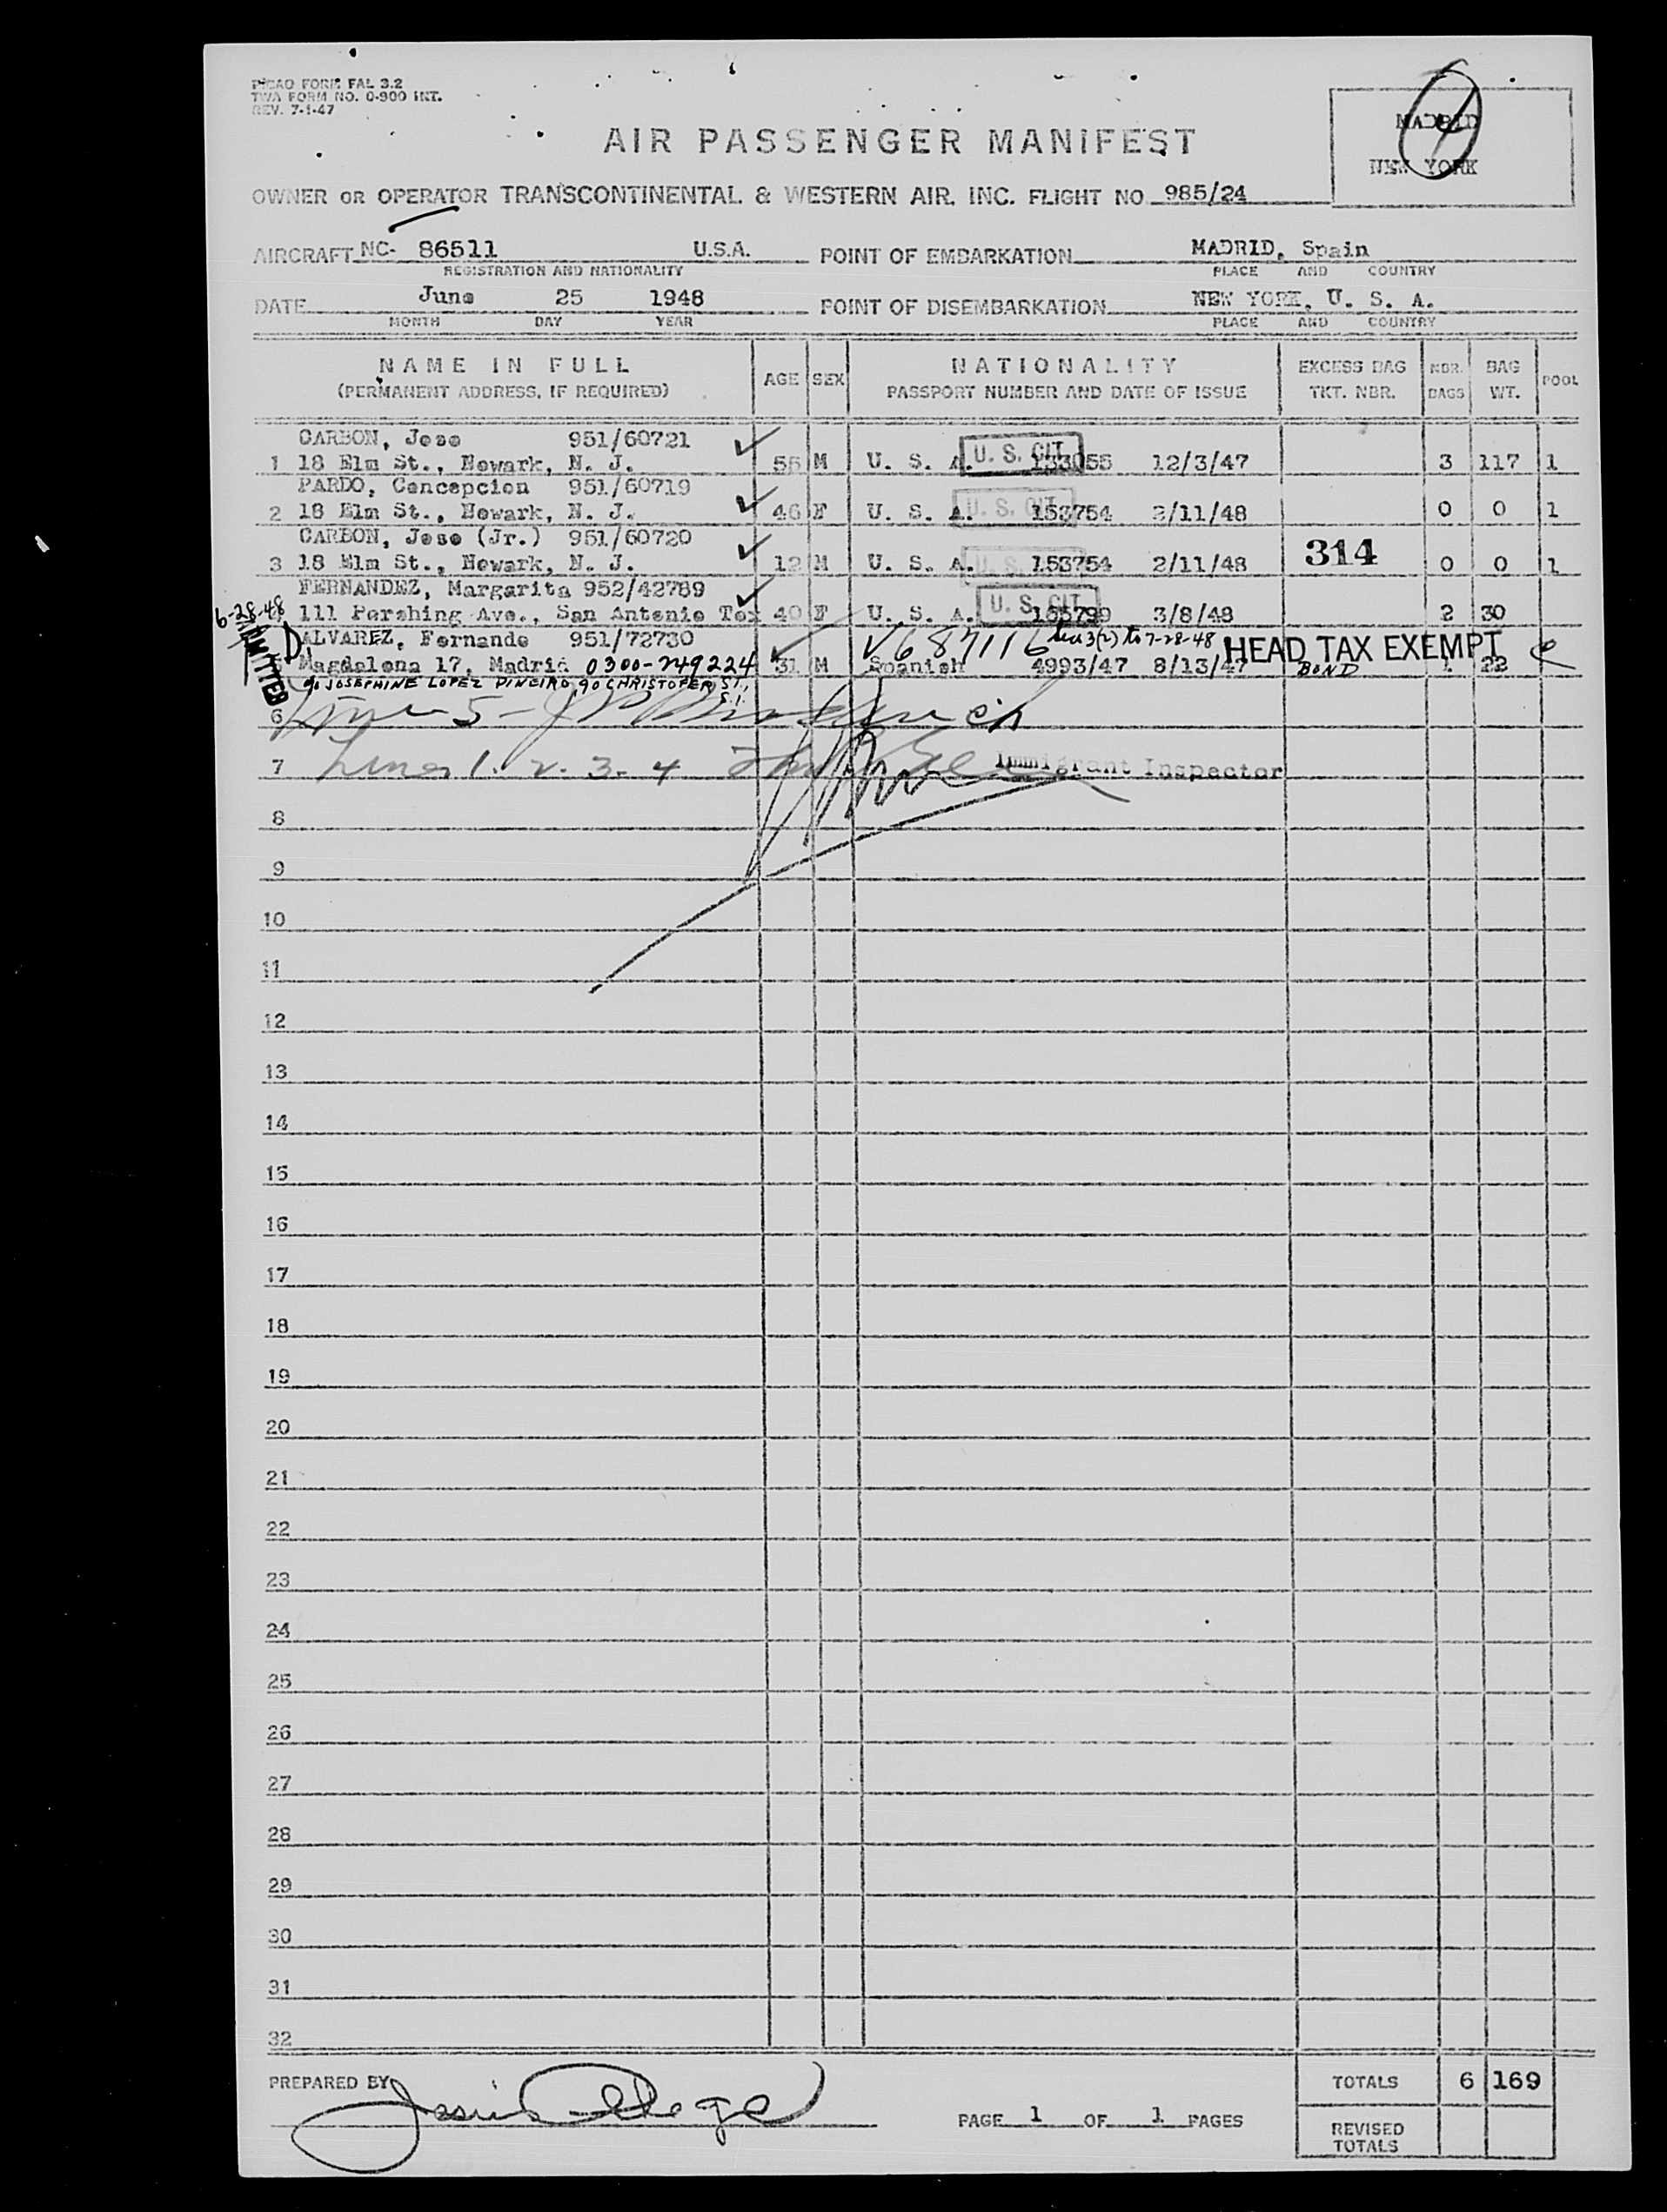 PICAO FORM FAL 3.2
TWA FORM NO. O-900 INT.
REV. 7-1-47
MADRID
NEW YORK
AIR PASSENGER MANIFEST
OWNER OR OPERATOR TRANSCONTINENTAL & WESTERN AIR, INC. FLIGHT NO 985/24
AIRCRAFT NC- 86511 U.S.A. POINT OF EMBARKATION MADRID, Spain
REGISTRATION AND NATIONALITY PLACE AND COUNTRY
DATE June 25 1948 POINT OF DISEMBARKATION NEW YORK, U. S. A.
MONTH DAY YEAR PLACE AND COUNTRY
NAME IN FULL AGE SEX NATIONALITY EXCESS BAG NBR. BAG POOL
(PERMANENT ADDRESS, IF REQUIRED) PASSPORT NUMBER AND DATE OF ISSUE TKT. NBR. BAGS WT.
CARBON, Jose 951/60721
1 18 Elm St., Newark, N. J. 55 M U. S. A. U. S. CIT. 153055 12/3/47 3 117 1
PARDO, Concepcion 951/60719
2 18 Elm St., Newark, N. J. 46 F U. S. A. U. S. CIT. 153754 2/11/48 0 0 1
CARBON, Jose (Jr.) 951/60720
3 18 Elm St., Newark, N. J. 12 M U. S. A. U. S. 153754 2/11/48 314 0 0 1
FERNANDEZ, Margarita 952/42789
111 Pershing Ave., San Antonio Tex 40 F U. S. A. U. S. CIT. 3/8/48 2 30
6-28-48
ADMITTED
ALVAREZ, Fernando 951/72730 V687116 Sec 3(2) to 7-28-48 HEAD TAX EXEMPT
Magdalena 17, Madrid 0300-249224 31 M Spanish 4993/47 8/13/47 BOND 1 22
c/o JOSEPHINE LOPEZ PINEIRO, 90 CHRISTOPER ST.,
S.I.
6 Line 5 -
7 Lines 1. 2. 3. 4 Immigrant Inspector
8
9
10
11
12
13
14
15
16
17
18
19
20
21
22
23
24
25
26
27
28
29
30
31
32
PREPARED BY TOTALS 6 169
PAGE 1 OF 1 PAGES
REVISED
TOTALS